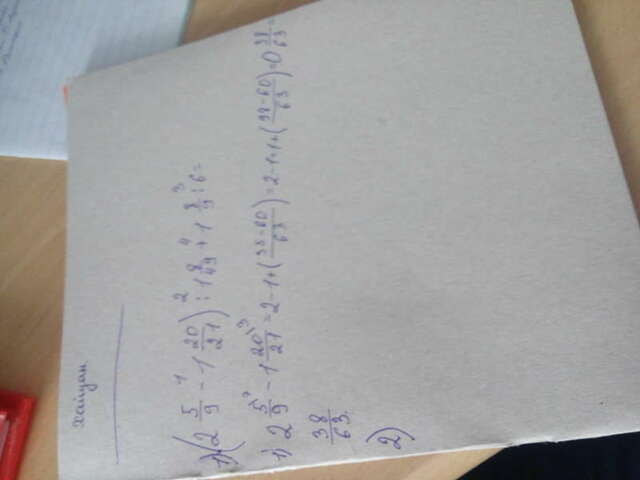 Хайдан.
1) (2 5/9 - 1 20/21) : 1 8/49 + 1 8/9 : 6 =
1 2 4 3
1) 2 5/9 - 1 20/21 = 2-1+(35-60/63) = 2-1=1+(98-60/63) = 0 38/63 =
38/63
2)